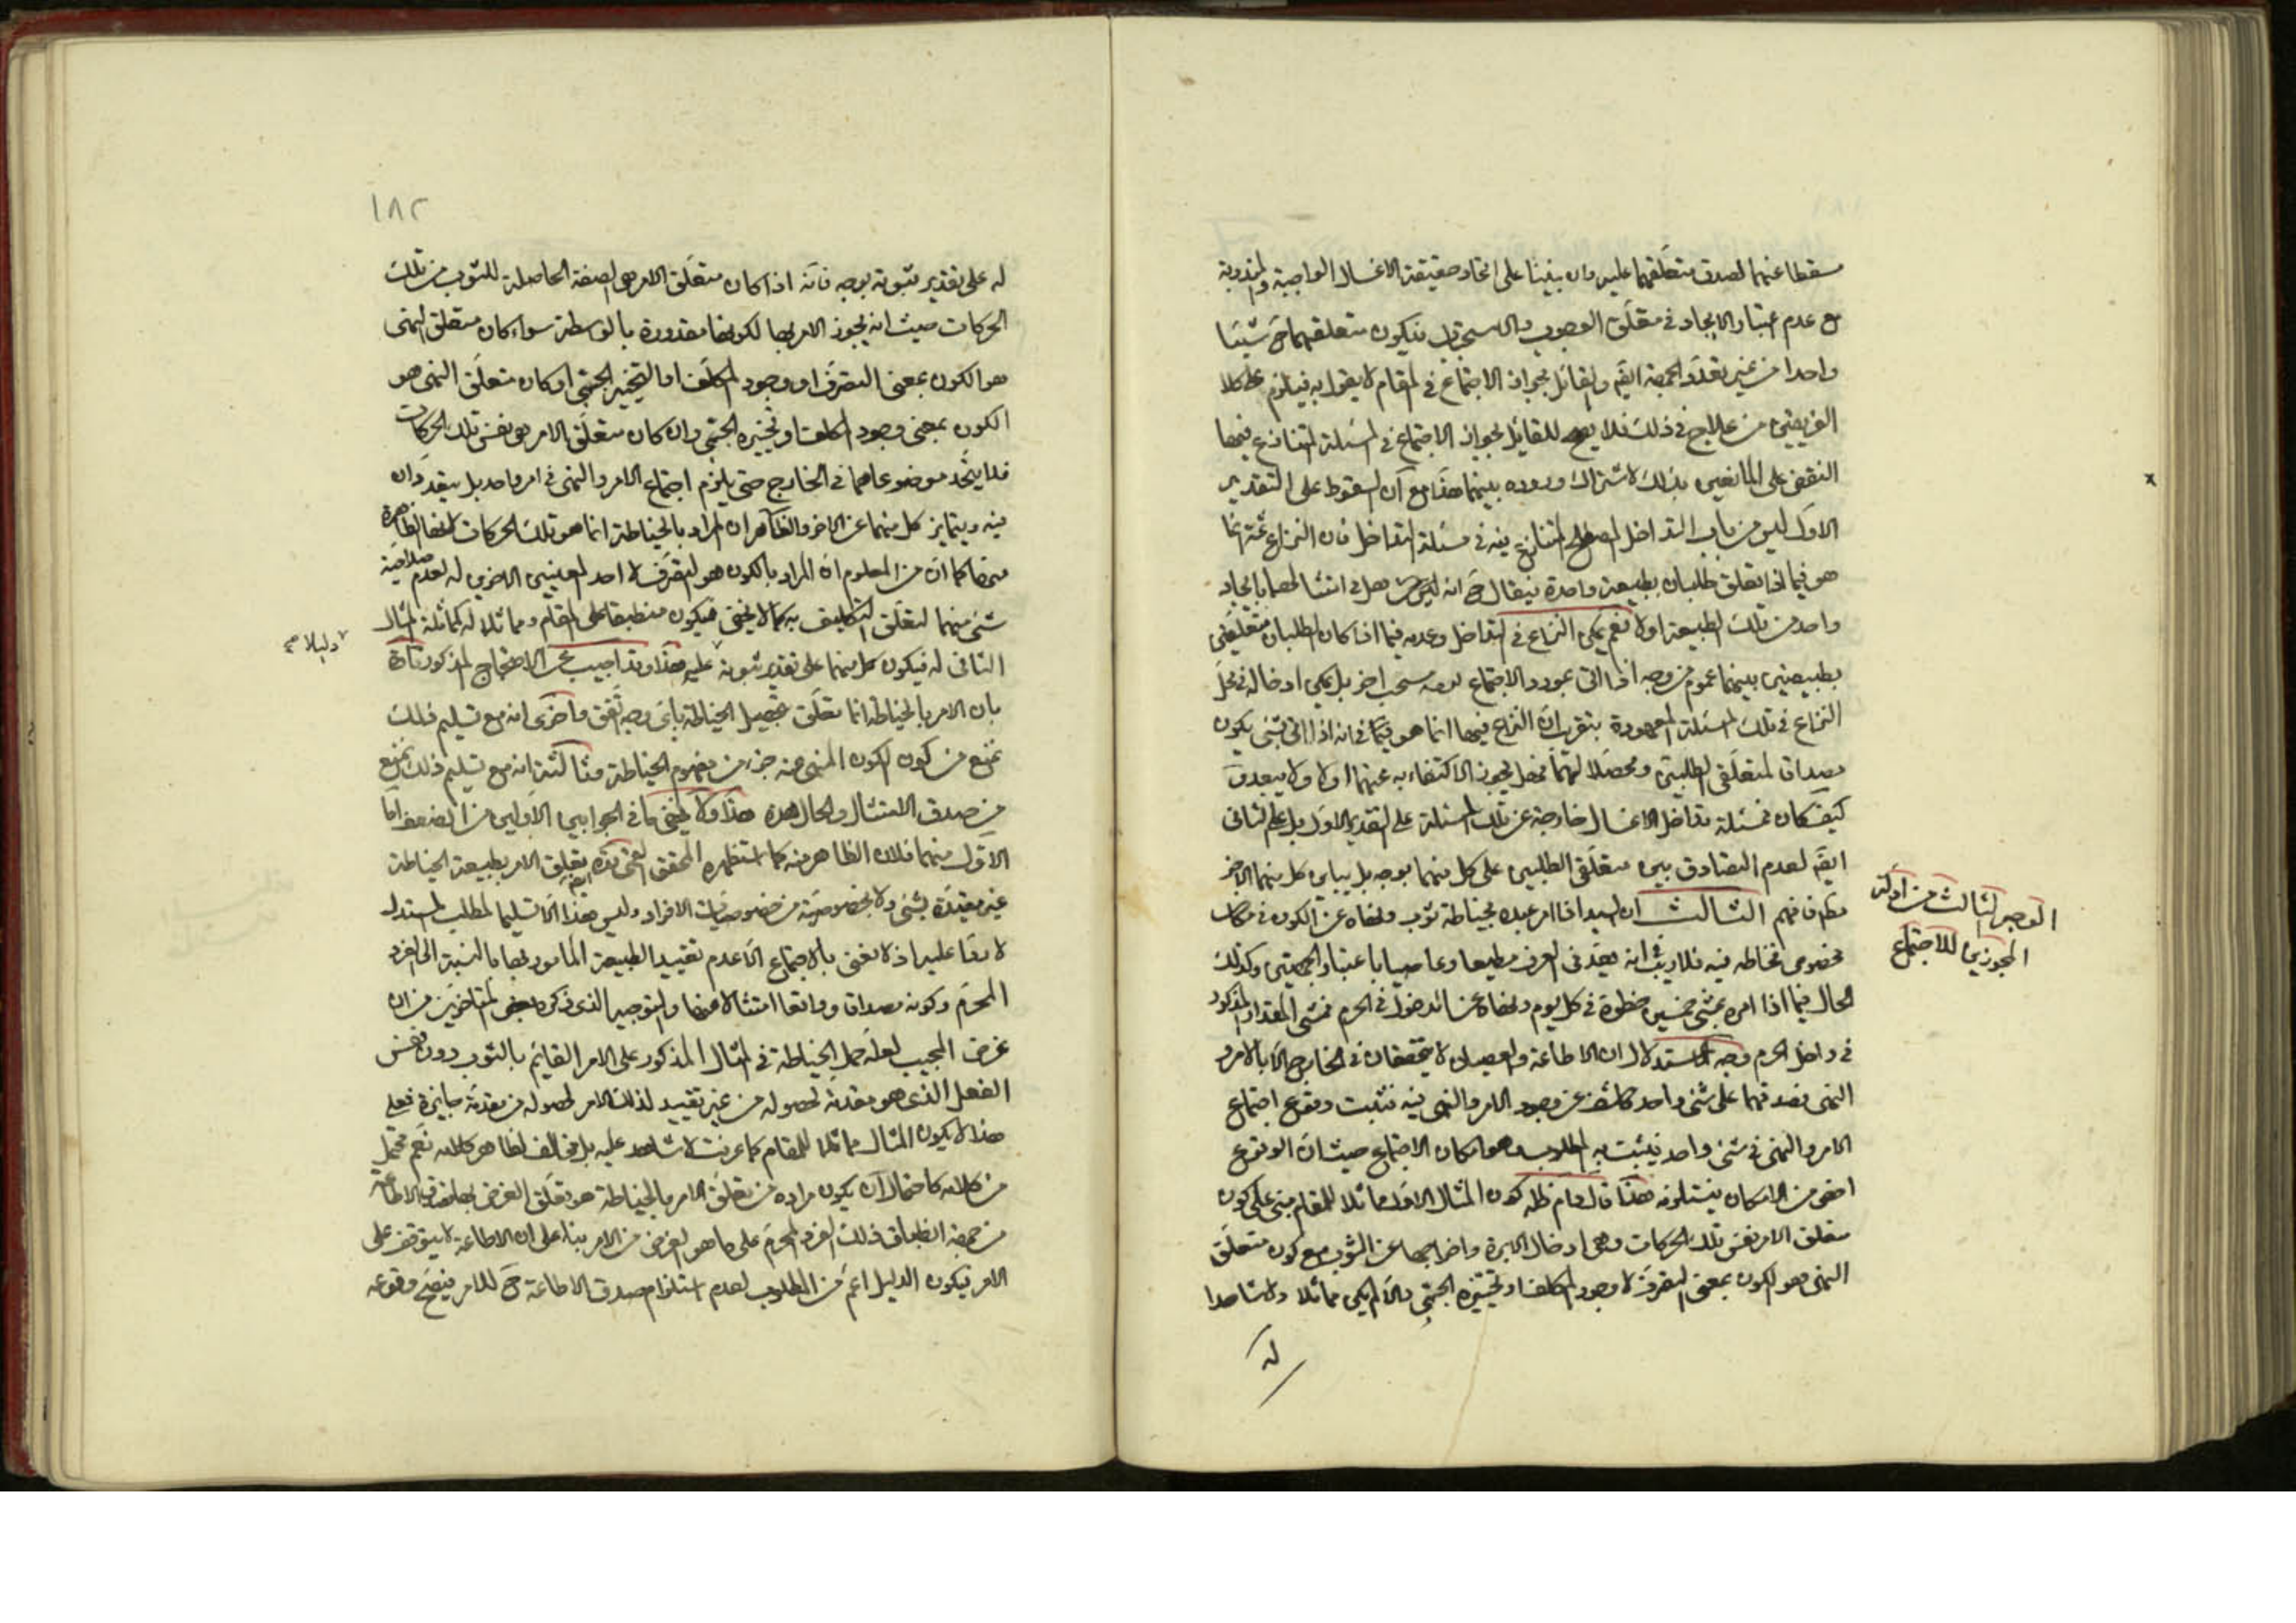 مسقطا عنهما لصدق متعلقهما عليه وان بنينا على اتحاد حقيقة الاغسال الواجبة والمندوبة
مع عدم اعتبار الايجاد في متعلق الوجوب والاستحباب فيكون متعلقهما ح شيئا
واحدا من غير تعدد الجهة ايضا والقائل بجواز الاجتماع في المقام لا يقول به فيلزم على كلا
الفريقين من علاج في ذلك فلا يصح للقائل بجواز الاجتماع في المسئلة المتنازع فيها
النقض على المانعين بذلك لاشتراك وروده بينهما هذا مع ان السقوط على التقدير
الاول ليس من باب التداخل المصطلح المتنازع فيه في مسئلة التداخل فان النزاع ثمة انما
هو فيما اذا تعلق طلبان بطبيعة واحدة فيقال ح انه هل في امتثالهما بايجاد
واحد من تلك الطبيعة اولا نعم يمكن النزاع في التداخل وعدمه فيما اذا كان الطلبان متعلقين
بطبيعتين بينهما عموم من وجه اذا اتى بمورد الاجتماع بل يمكن ادخاله في محل
النزاع في تلك المسئلة المعهودة بتقريب ان النزاع فيها انما هو في انه اذا اتى بشئ يكون
مصداقا لمتعلقي الطلبين ومحصلا لهما فهل يجوز الاكتفاء به عنهما اولا ولا يبعد
كيف كان فمسئلة تداخل الاغسال خارجة عن تلك المسئلة على التقدير الاول بل على الثاني
ايضا لعدم التصادق بين متعلقي الطلبين على كل منهما بوجه بل يباين كل منهما الاخر
فافهم الثالث ان السيد اذا امر عبده بخياطة ثوب ونهاه عن الكون في مكان
مخصوص فخاطه فيه فلا ريب في انه يعد في العرف مطيعا وعاصيا باعتبار الجهتين وكذلك
الحال فيما اذا امره بمشي خمسين خطوة في كل يوم ونهاه عن الدخول في الحرم فمشى المقدار المذكور
في داخل الحرم وجه الاستدلال ان الاطاعة والعصيان لا يتحققان في الخارج الا بالامر و
النهي فصدقهما على شئ واحد كاشف عن وجود الامر والنهي فيه فثبت وقوع اجتماع
الامر والنهي في شئ واحد فيثبت به المطلوب وهو امكان الاجتماع حيث ان الوقوع
اخص من الامكان فيستلزمه هذا قال دام ظله كون المثال الاول مماثلا للمقام مبني على كون
متعلق الامر نفس تلك الحركات وهي ادخال الابرة واخراجها عن الثوب مع كون متعلق
النهي هو الكون بمعنى التصرف لا وجود المكلف او تحيزه الجسمي والا لم يكن مماثلا ولا شاهدا
له
الوجه الثالث من ادلة
المجوزين للاجتماع
١٨٢
له على تقدير ثبوته بوجه فانه اذا كان متعلق الامر هي الصفة الحاصلة للثوب من تلك
الحركات حيث انه يجوز الامر بها لكونها مقدورة بالواسطة سواء كان متعلق النهي
هو الكون بمعنى التصرف او وجود المكلف او التحيز الجسمي او كان متعلق النهي هو
الكون بمعنى وجود المكلف او تحيزه الجسمي وان كان متعلق الامر هو نفس تلك الحركات
فلا يتحد موضوعاهما في الخارج حتى يلزم اجتماع الامر والنهي في امر واحد بل يتعددان
فيه ويتمايز كل منهما عن الاخر والظاهر ان المراد بالخياطة انما هو تلك الحركات لانها الظاهرة
منها كما ان من المعلوم ان المراد بالكون هو التصرف لا احد المعنيين الاخرين له لعدم صلاحية
شئ منهما لتعلق التكليف به كما لا يخفى فيكون منطبقا على المقام ومماثلا له كمماثلة المثال
الثاني له فيكون كل منهما على تقدير ثبوته عليه هذا وقد اجيب عن الاحتجاج المذكور تارة
بان الامر بالخياطة انما تعلق بتحصيل الخياطة باي وجه اتفق واخرى انه مع تسليم ذلك
نمنع من كون الكون المنهي عنه جزء من مفهوم الخياطة وثالثة انه مع تسليم ذلك نمنع
من صدق الامتثال والحال هذه هذا ولا يخفى ما في الجوابين الاولين من الضعف اما
الاول منهما فلان الظاهر منه كما استظهره المحقق القمي قده تعلق الامر بطبيعة الخياطة
غير مقيدة بشئ ولا بخصوصية من خصوصيات الافراد وليس هذا الا تسليما لمطلب المستدل
لا ردا عليه اذ لا نعني بالاجتماع الا عدم تقييد الطبيعة المامور بها بالنسبة الى الفرد
المحرم وكونه مصداقا وواقعا امتثالا عنها والتوجيه الذي ذكره بعض المتاخرين من ان
غرض المجيب لعله حمل الخياطة في المثال المذكور على الامر القائم بالثوب دون نفس
الفعل الذي هو مقدمة لحصوله من غير تقييد لذلك الامر لحصوله من مقدمة جايزة فعلى
هذا لا يكون المثال مماثلا للمقام كما عرفت لا شاهد عليه بل مخالف لظاهر كلامه نعم يحتمل
من كلامه كاحتمال ان يكون مراده من تعلق الامر بالخياطة هو تعلق الغرض بها فصدق الاطاعة
من جهة انطباق ذلك الفرد المحرم على ما هو الغرض من الامر بناء على ان الاطاعة لا يتوقف على
الامر فيكون الدليل اعم من المطلوب لعدم استلزام صدق الاطاعة ح للامر وقوعه
ودليلا صح